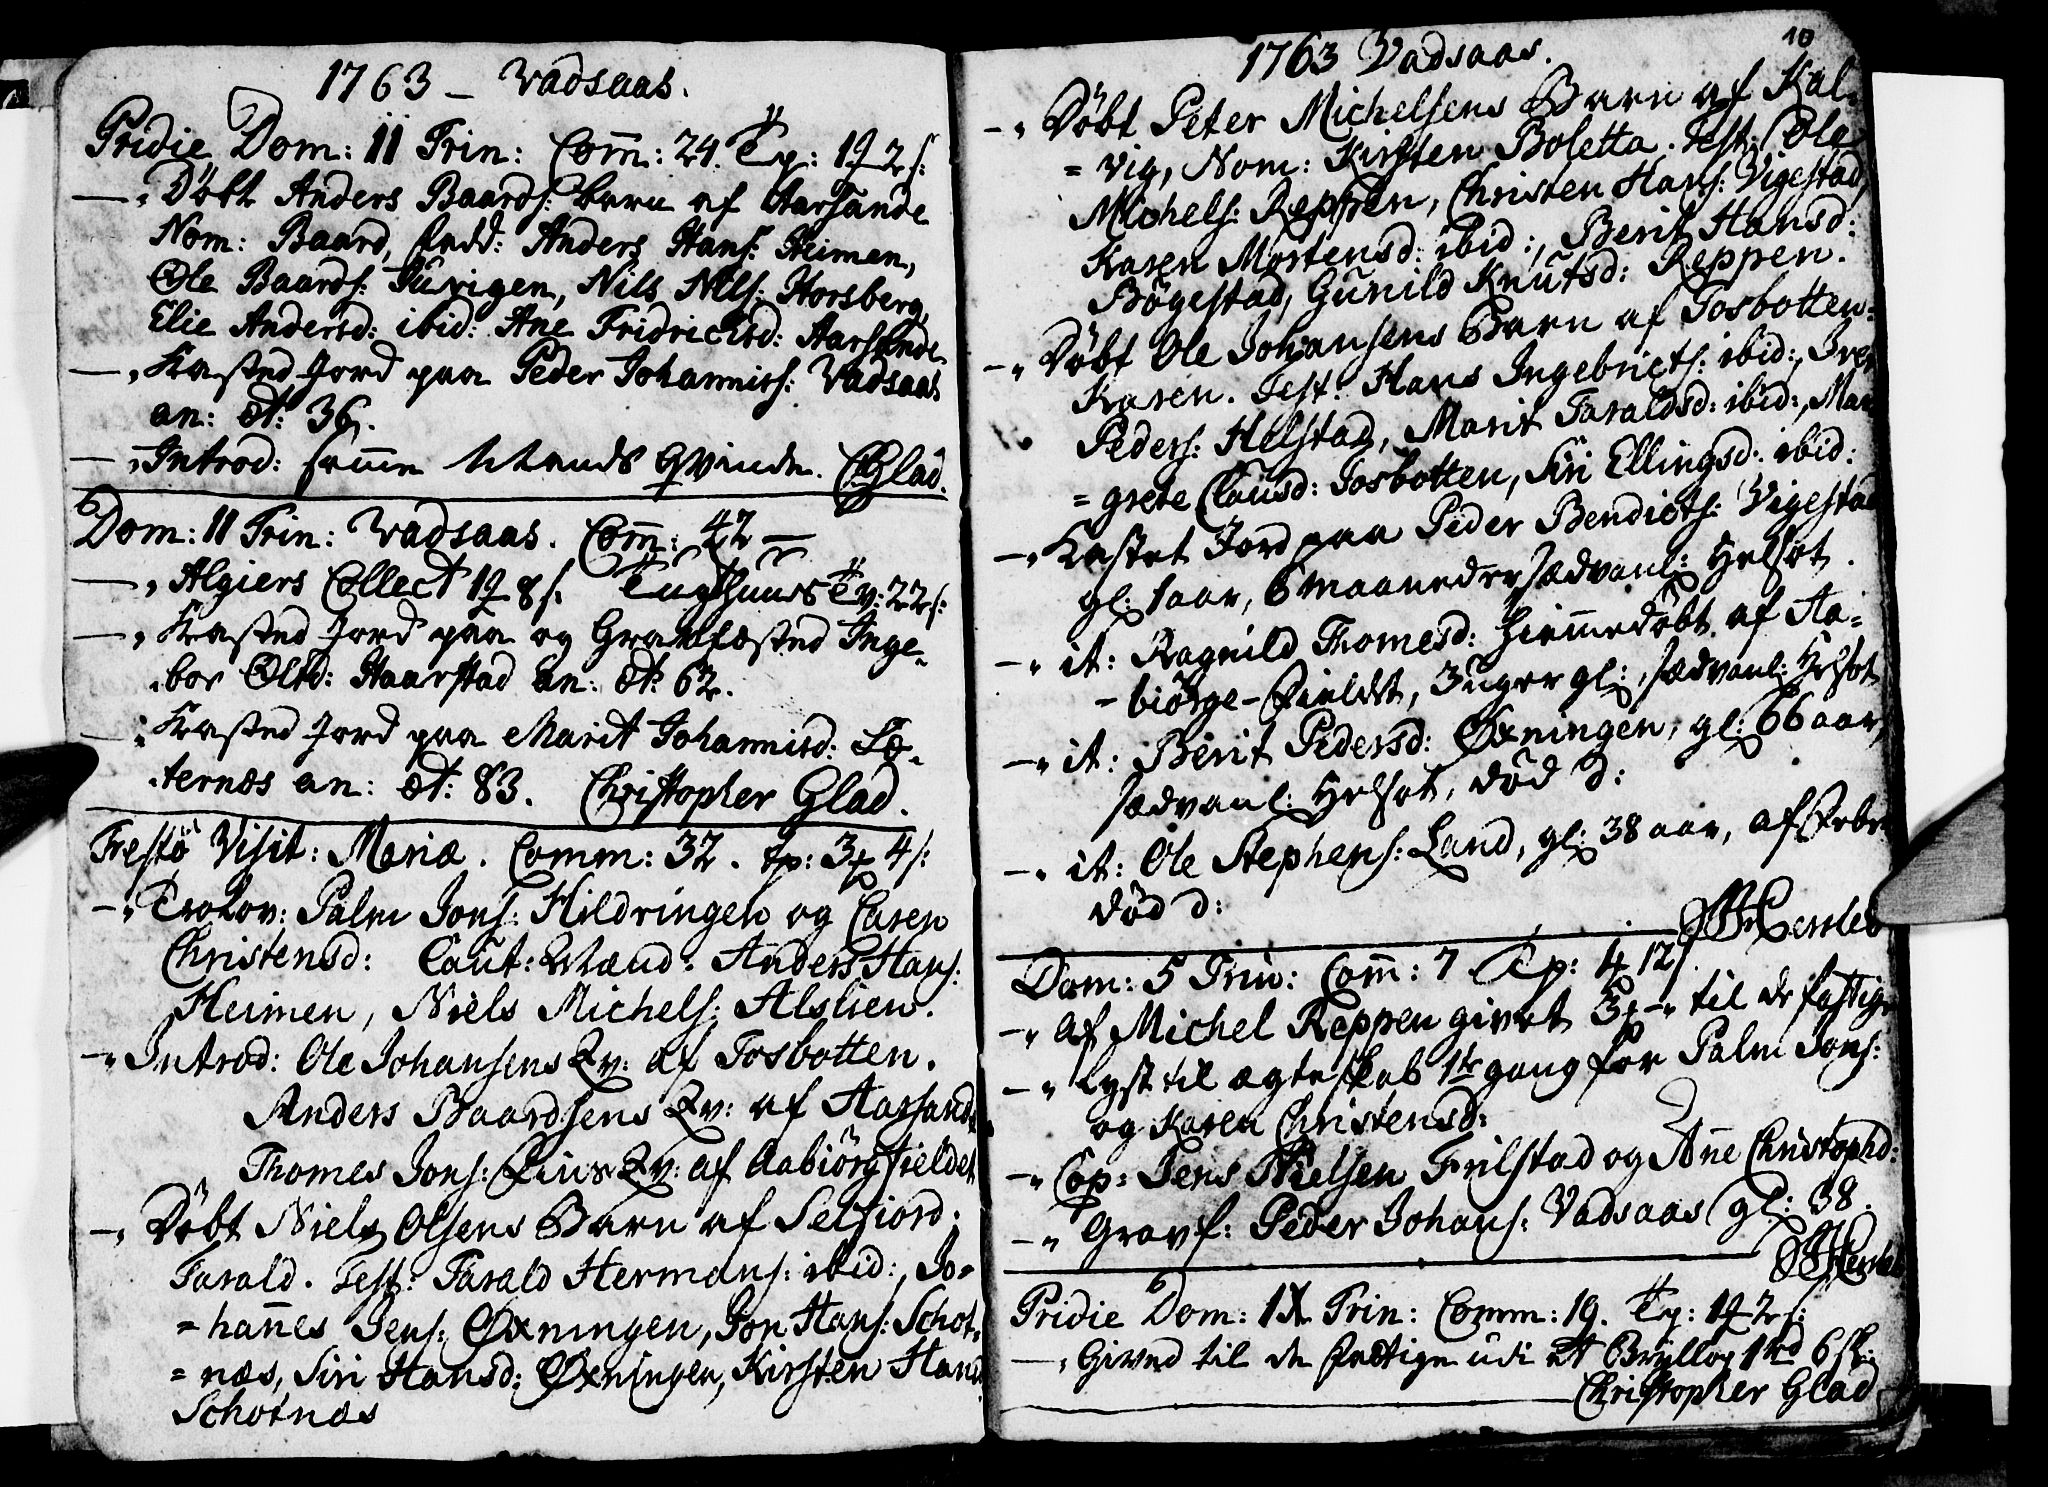 1763 - Vadsaas.
Pridie Dom: 11 Trin: Comm: 24. Tp: 2 s:
Döbt Anders Baards: barn af Aarsande
Nom: Baard, fadd: Anders Hans: Heimen,
Ole Baards: Turigen, Nils Nils: Horsberg,
Elie Andersd: ibid: Ane Fridrichsd: Aarsande
Kasted Jord paa Peder Johannis: Vadsaas
an: æt: 36.
Introd: samme Mands Qvinde. CGlad.
Dom: 11 Trin: Vadsaas. Comm: 42 -
Algiers Collect 8 s. Tugthuus Tv: 22 s:
Kasted Jord paa og Gravfæsted Inge-
bor Olsd: Haarstad an: æt: 62.
Kasted Jord paa Marit Johannisd: Sæ-
ternæs an: æt: 83. Christopher Glad.
Festo Visit: Mariæ. Comm: 32. Tp: 3 4 s:
Trolov: Palm Jons: Hildringen og Caren
Christensd: Caut: Mænd: Anders Hans:
Heimen, Niels Michels: Alslien.
Introd: Ole Johansens Qv: af Tosbotten.
Anders Baardsens Qv: af Aarsand
Thomes Jons: Fins Qv: af Aabiörgfieldet
Döbt Niels Olsens Barn af Selfiord.
Tarald. Test: Tarald Hermans: ibid:, Jo=
=hannes Jens: Øxningen, Jon Hans: Schot=
=næs, Siri Hansd: Øxningen, Kirsten Hans
Schotnæs
10
1763 Vadsaas.
Döbt Peter Michelsens Barn af Kal=
=vig, Nom: Kirsten Boletta. Test: Ole
Michels: Reppen, Christen Hans: Vigestad,
Karen Mortensd: ibid:, Berit Hansd:
Bögestad, Gunild Knutsd: Reppen.
Döbt Ole Johansens Barn af Tosbotten=
Karen. Test: Hans Ingebricts: ibid:, Iver
Peders: Helstad, Marit Taraldsd: ibid:, Mar
=grete Clausd: Tosbotten, Siri Ellingsd: ibid:
Kastet Jord paa Peder Bendicts: Vigestad
gl: 1 aar, 6 maaneder, sædvanl: Helsot.
it: Ragnild Thomesd: hiemmedöbt af Aa=
=biörge-Fieldet, 3 uger gl:, sædvanl: Helsot
it: Berit Pedersd: Øxningen, gl: 66 aar,
sædvanl: Helsot, död d:
it: Ole Stephens: Land, gl: 38 aar, af Feber
död d:
Hersleb
Dom: 5 Trin: Comm: 7 Tp: 12 s.
Af Michel Reppen givet 3 - til de fattige
Lyst til ægteskab 1te gang for Palm Jons:
og Karen Christensd:
Cop: Jens Nielsen Frilstad og Anne Christophd:
Gravf: Peder Johans: Vadsaas gl: 38.
Hersleb
Pridie Dom: IX Trin: Comm: 19. Tp: 2 s:
Gived til de fattige udi et Bryllop 1 rd 6 sk:
Christopher Glad